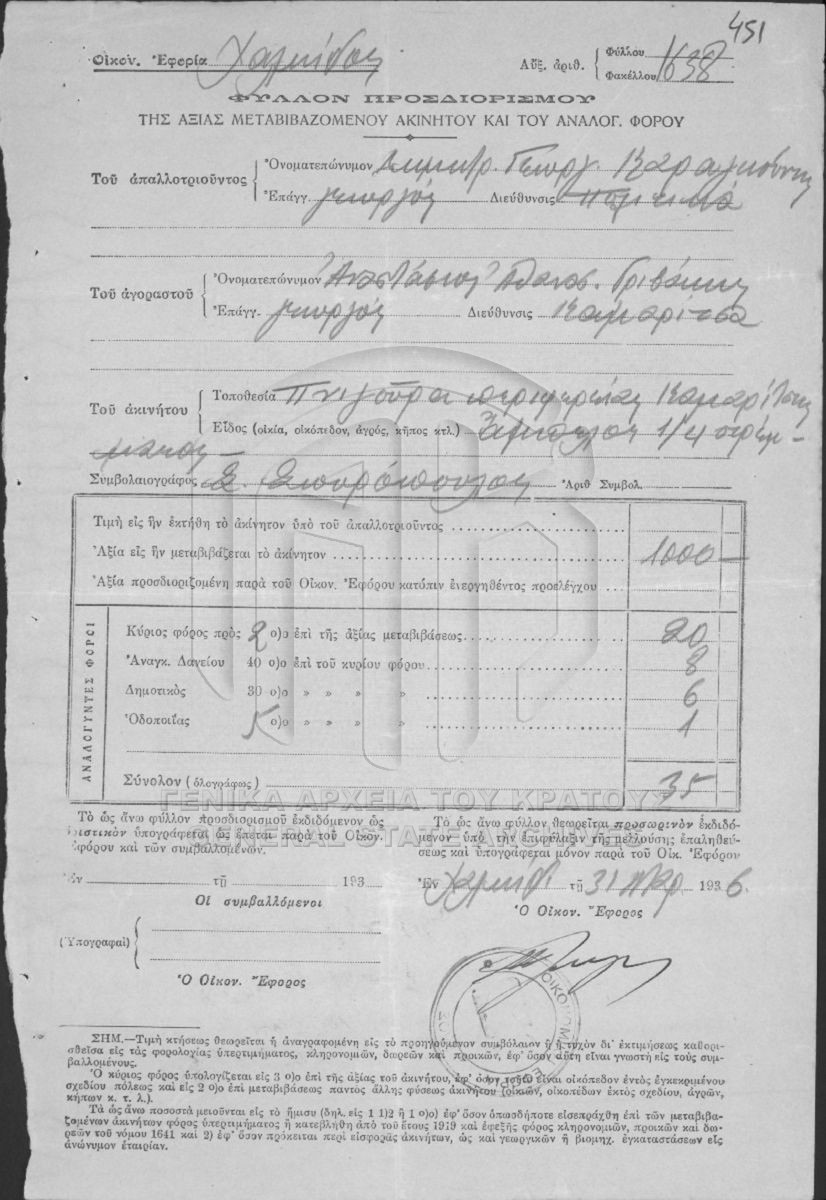 451
Οἰκον. Ἐφορία Χαλκίδος
Αὔξ. ἀριθ. Φύλλου
Φακέλλου 1638
ΦΥΛΛΟΝ ΠΡΟΣΔΙΟΡΙΣΜΟΥ
ΤΗΣ ΑΞΙΑΣ ΜΕΤΑΒΙΒΑΖΟΜΕΝΟΥ ΑΚΙΝΗΤΟΥ ΚΑΙ ΤΟΥ ΑΝΑΛΟΓ. ΦΟΡΟΥ
Τοῦ ἀπαλλοτριοῦντος
Ὀνοματεπώνυμον Δημητρ. Γεωργ.
Ἐπάγγ. γεωργός Διεύθυνσις Πολιτικά
Τοῦ ἀγοραστοῦ
Ὀνοματεπώνυμον Ἀναστάσιος Ἀθανασ.
Ἐπάγγ. γεωργός Διεύθυνσις Καμαρίτσα
Τοῦ ἀκινήτου
Τοποθεσία περιφερείας Καμαρίτσης
Εἶδος (οἰκία, οἰκόπεδον, ἀγρός, κῆπος κτλ.) Ἄμπελος 1/4 στρέμ-
ματος
Συμβολαιογράφος Σ. Σπυρόπουλος Ἀριθ Συμβολ.
Τιμὴ εἰς ἣν ἐκτήθη τὸ ἀκίνητον ὑπὸ τοῦ ἀπαλλοτριοῦντος
Ἀξία εἰς ἣν μεταβιβάζεται τὸ ἀκίνητον 1000
Ἀξία προσδιοριζομένη παρὰ τοῦ Οἰκον. Ἐφόρου κατόπιν ἐνεργηθέντος προελέγχου
ΑΝΑΛΟΓΥΝΤΕΣ ΦΟΡΟΙ
Κύριος φόρος πρὸς 2 ο)ο ἐπὶ τῆς ἀξίας μεταβιβάσεως 20
Ἀναγκ. Δανείου 40 ο)ο ἐπὶ τοῦ κυρίου φόρου 8
Δημοτικὸς 30 ο)ο » » » » 6
Ὁδοποιΐας 5 ο)ο » » » » 1
Σύνολον (ὁλογράφως) 35
ΓΕΝΙΚΑ ΑΡΧΕΙΑ ΤΟΥ ΚΡΑΤΟΥΣ
GENERAL STATE ARCHIVES
Τὸ ὡς ἄνω φύλλον προσδιορισμοῦ ἐκδιδόμενον ὡς
ὁριστικὸν ὑπογράφεται ὡς ἕπεται παρὰ τοῦ Οἰκον.
Ἐφόρου καὶ τῶν συμβαλλομένων.
Ἐν τῇ 193
Οἱ συμβαλλόμενοι
(Ὑπογραφαὶ)
Ὁ Οἰκον. Ἔφορος
Τὸ ὡς ἄνω φύλλον θεωρεῖται προσωρινὸν ἐκδιδό-
μενον ὑπὸ τὴν ἐπιφύλαξιν τῆς μελλούσης ἐπαληθεύ-
σεως καὶ ὑπογράφεται μόνον παρὰ τοῦ Οἰκ. Ἐφόρου
Ἐν Χαλκίδι τῇ 31 1936
Ὁ Οἰκον. Ἔφορος
ΣΗΜ.—Τιμὴ κτήσεως θεωρεῖται ἡ ἀναγραφομένη εἰς τὸ προηγούμενον συμβόλαιον ἢ ἡ τυχὸν δι' ἐκτιμήσεως καθορι-
σθεῖσα εἰς τὰς φορολογίας ὑπερτιμήματος, κληρονομιῶν, δωρεῶν καὶ προικῶν, ἐφ' ὅσον αὕτη εἶναι γνωστὴ εἰς τοὺς συμ-
βαλλομένους.
Ὁ κύριος φόρος ὑπολογίζεται εἰς 3 ο)ο ἐπὶ τῆς ἀξίας τοῦ ἀκινήτου, ἐφ' ὅσον τοῦτο εἶναι οἰκόπεδον ἐντὸς ἐγκεκριμένου
σχεδίου πόλεως καὶ εἰς 2 ο)ο ἐπὶ μεταβιβάσεως παντὸς ἄλλης φύσεως ἀκινήτου (οἰκιῶν, οἰκοπέδων ἐκτὸς σχεδίου, ἀγρῶν,
κήπων κ. τ. λ.).
Τὰ ὡς ἄνω ποσοστὰ μειοῦνται εἰς τὸ ἥμισυ (δηλ. εἰς 1 1)2 ἢ 1 ο)ο) ἐφ' ὅσον ὁπωσδήποτε εἰσεπράχθη ἐπὶ τῶν μεταβιβα-
ζομένων ἀκινήτων φόρος ὑπερτιμήματος ἢ κατεβλήθη ἀπὸ τοῦ ἔτους 1919 καὶ ἐφεξῆς φόρος κληρονομιῶν, προικῶν καὶ δω-
ρεῶν τοῦ νόμου 1641 καὶ 2) ἐφ' ὅσον πρόκειται περὶ εἰσφορᾶς ἀκινήτων, ὡς καὶ γεωργικῶν ἢ βιομηχ. ἐγκαταστάσεων εἰς
ἀνώνυμον ἑταιρίαν.